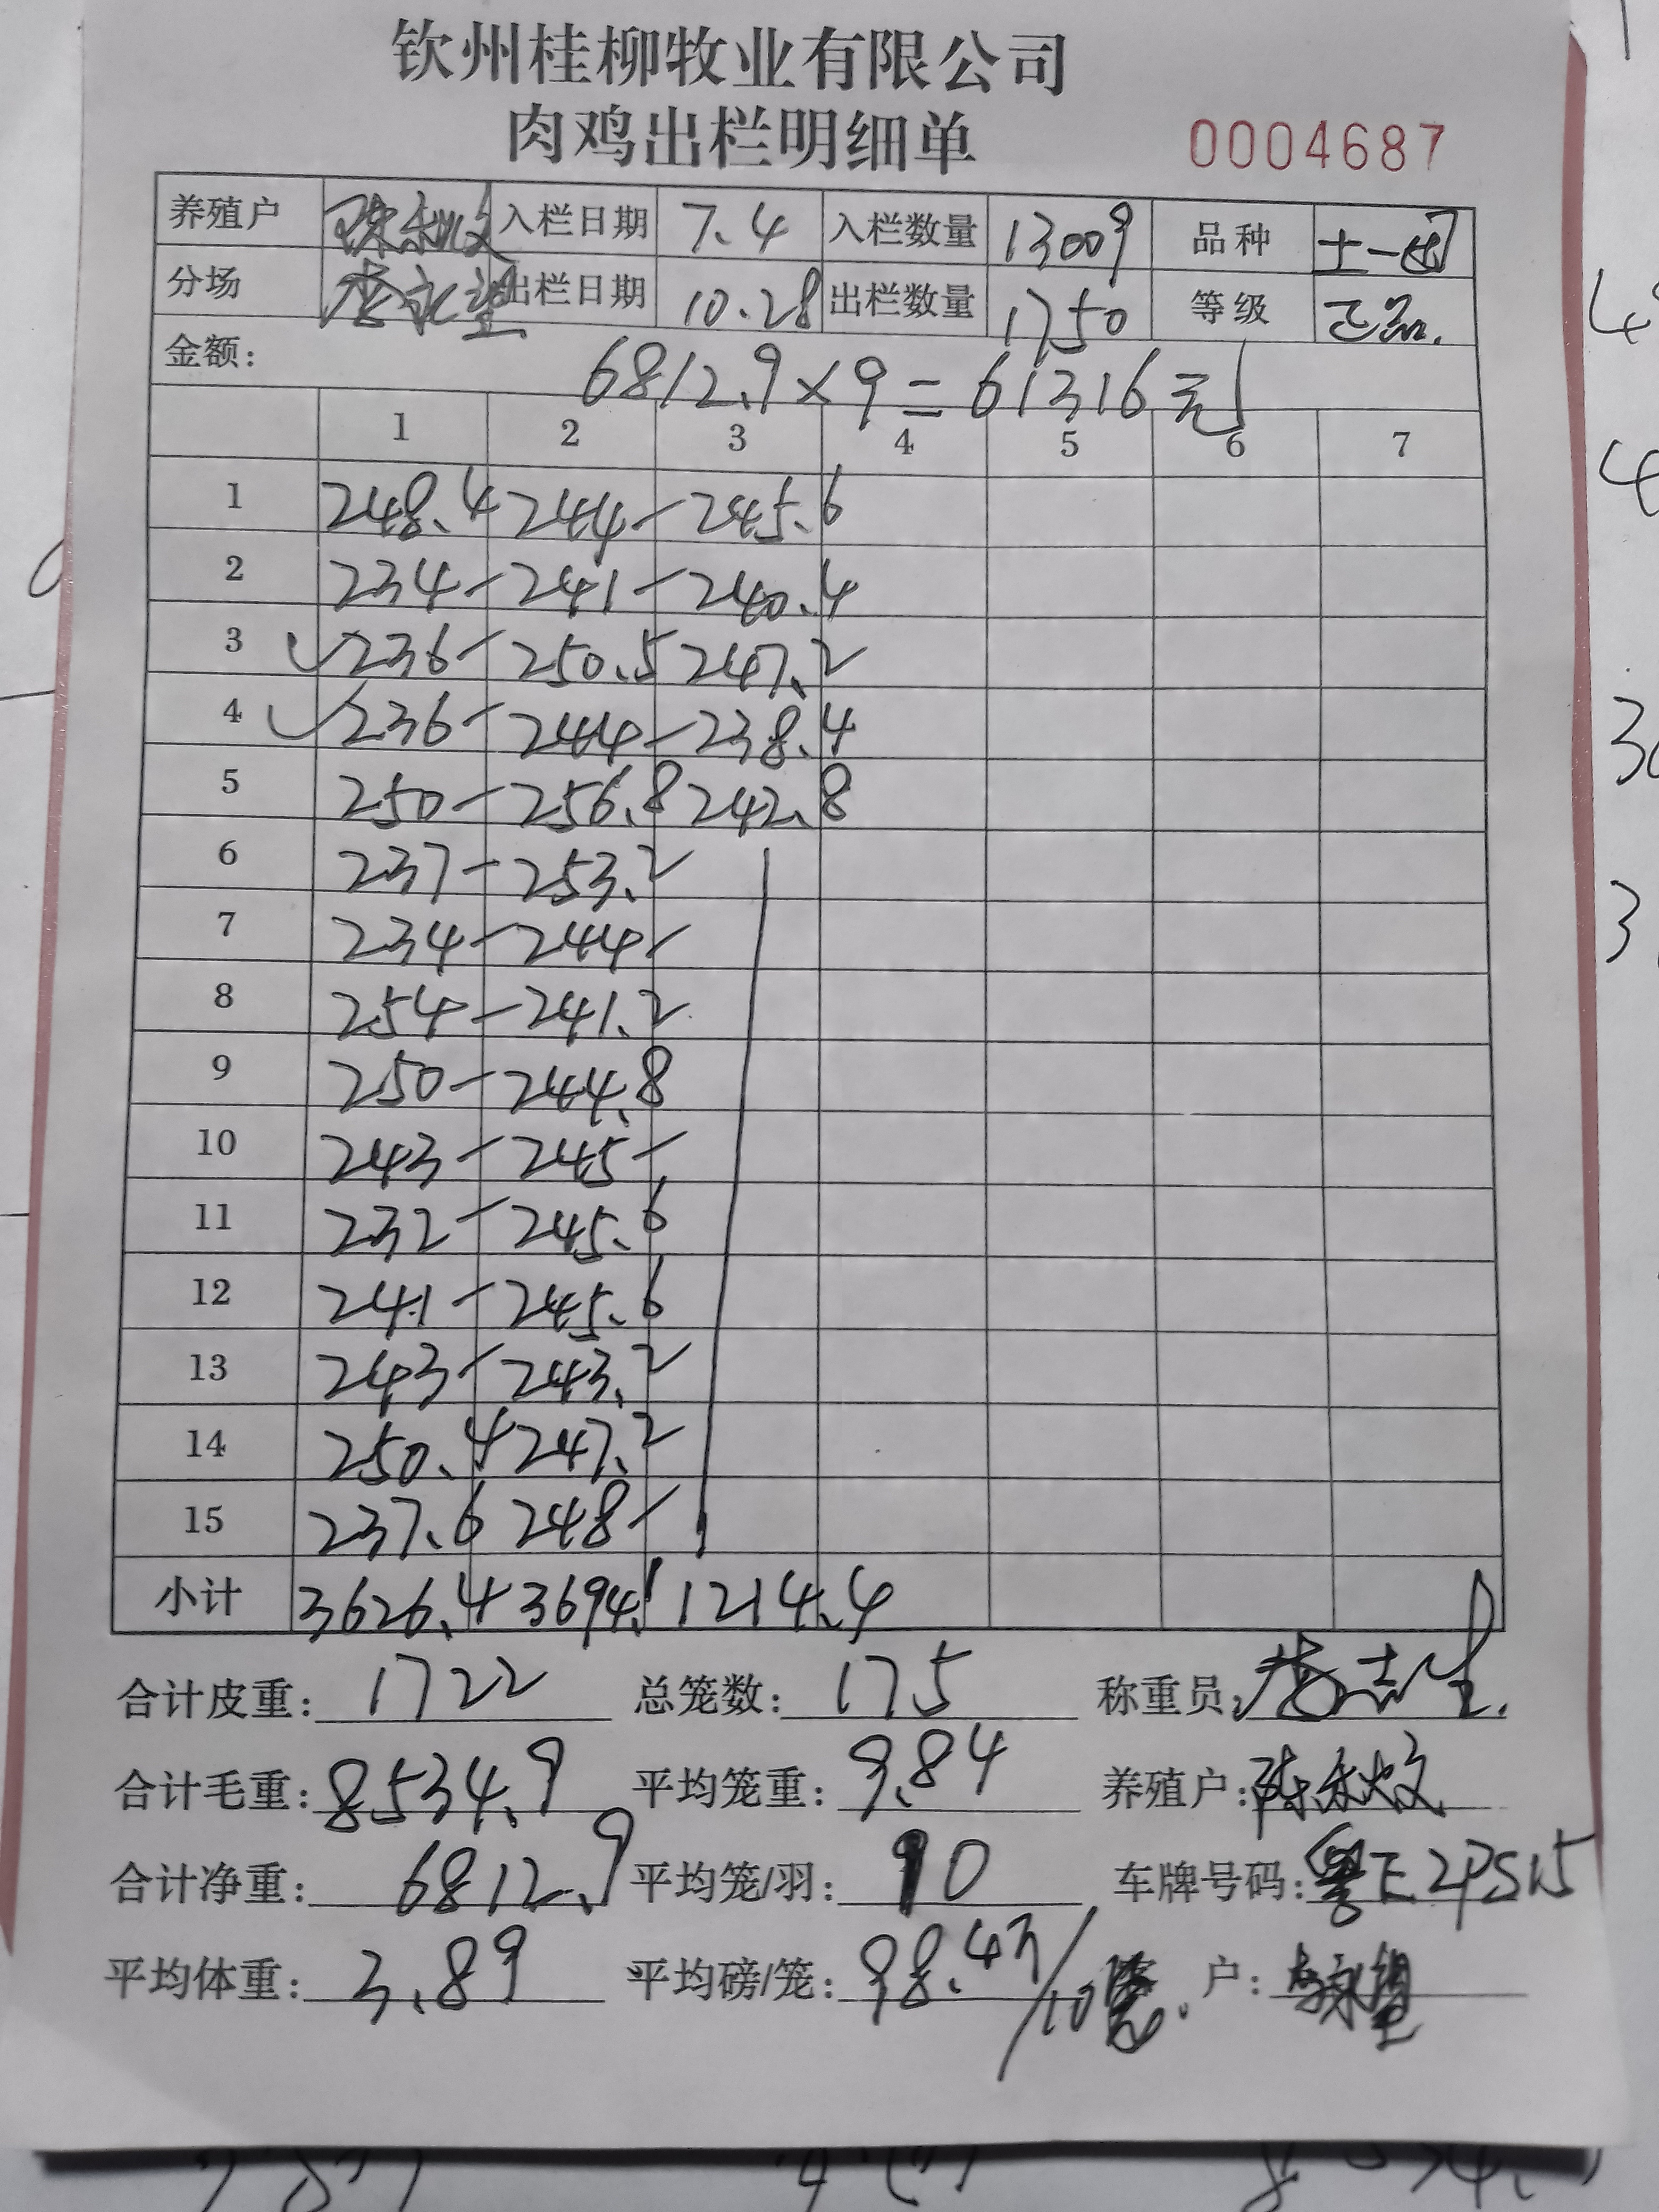 钦州桂柳牧业有限公司
肉鸡出栏明细单 0004687
养殖户 入栏日期 7.4 入栏数量 13009 品种 土一
分场 出栏日期 10.28 出栏数量 1750 等级 正品.
金额: 6812.9×9=61316元
1 2 3 4 5 6 7
1 248.4 244- 245.6
2 234- 241- 240.4
3 236- 250.5 247.2
4 236- 244- 238.4
5 250- 256.8 242.8
6 237- 253.2
7 234- 244-
8 254- 241.2
9 250- 244.8
10 243- 245-
11 232- 245.6
12 241- 245.6
13 243- 243.2
14 250.4 247.2
15 237.6 248-
小计 3626.4 3694.1 1214.4
合计皮重: 1722 总笼数: 175 称重员:
合计毛重: 8534.9 平均笼重: 9.84 养殖户:
合计净重: 6812.9 平均笼/羽: 10 车牌号码: 粤E2PS15
平均体重: 3.89 平均磅/笼: 98.43/10笼. 户: